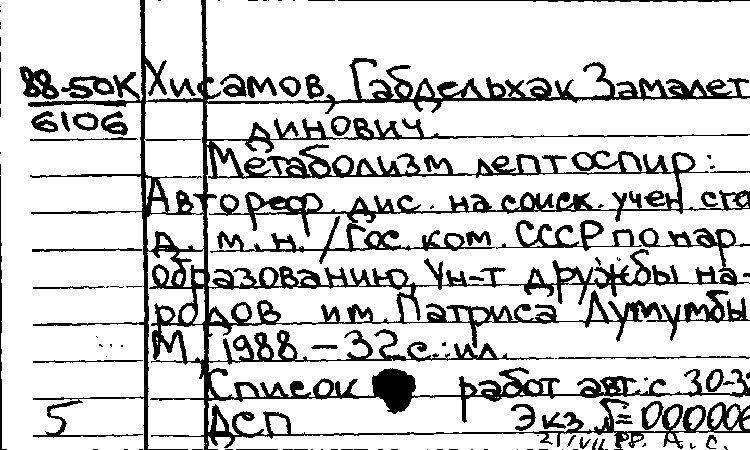 88-50К Хисамов, Габдельхак Замалет
6106 динович.
Метаболизм лептоспир:
Автореф. дис. на соиск. учен. сте
д. м. н. /Гос. ком. СССР по нар.
образованию, Ун-т дружбы на-
родов им. Патриса Лумумбы
М., 1988. – 32 с.: ил.
Список работ авт.: с 30-32
5 ДСП Экз. №=000006
21/VII 88. А. С.